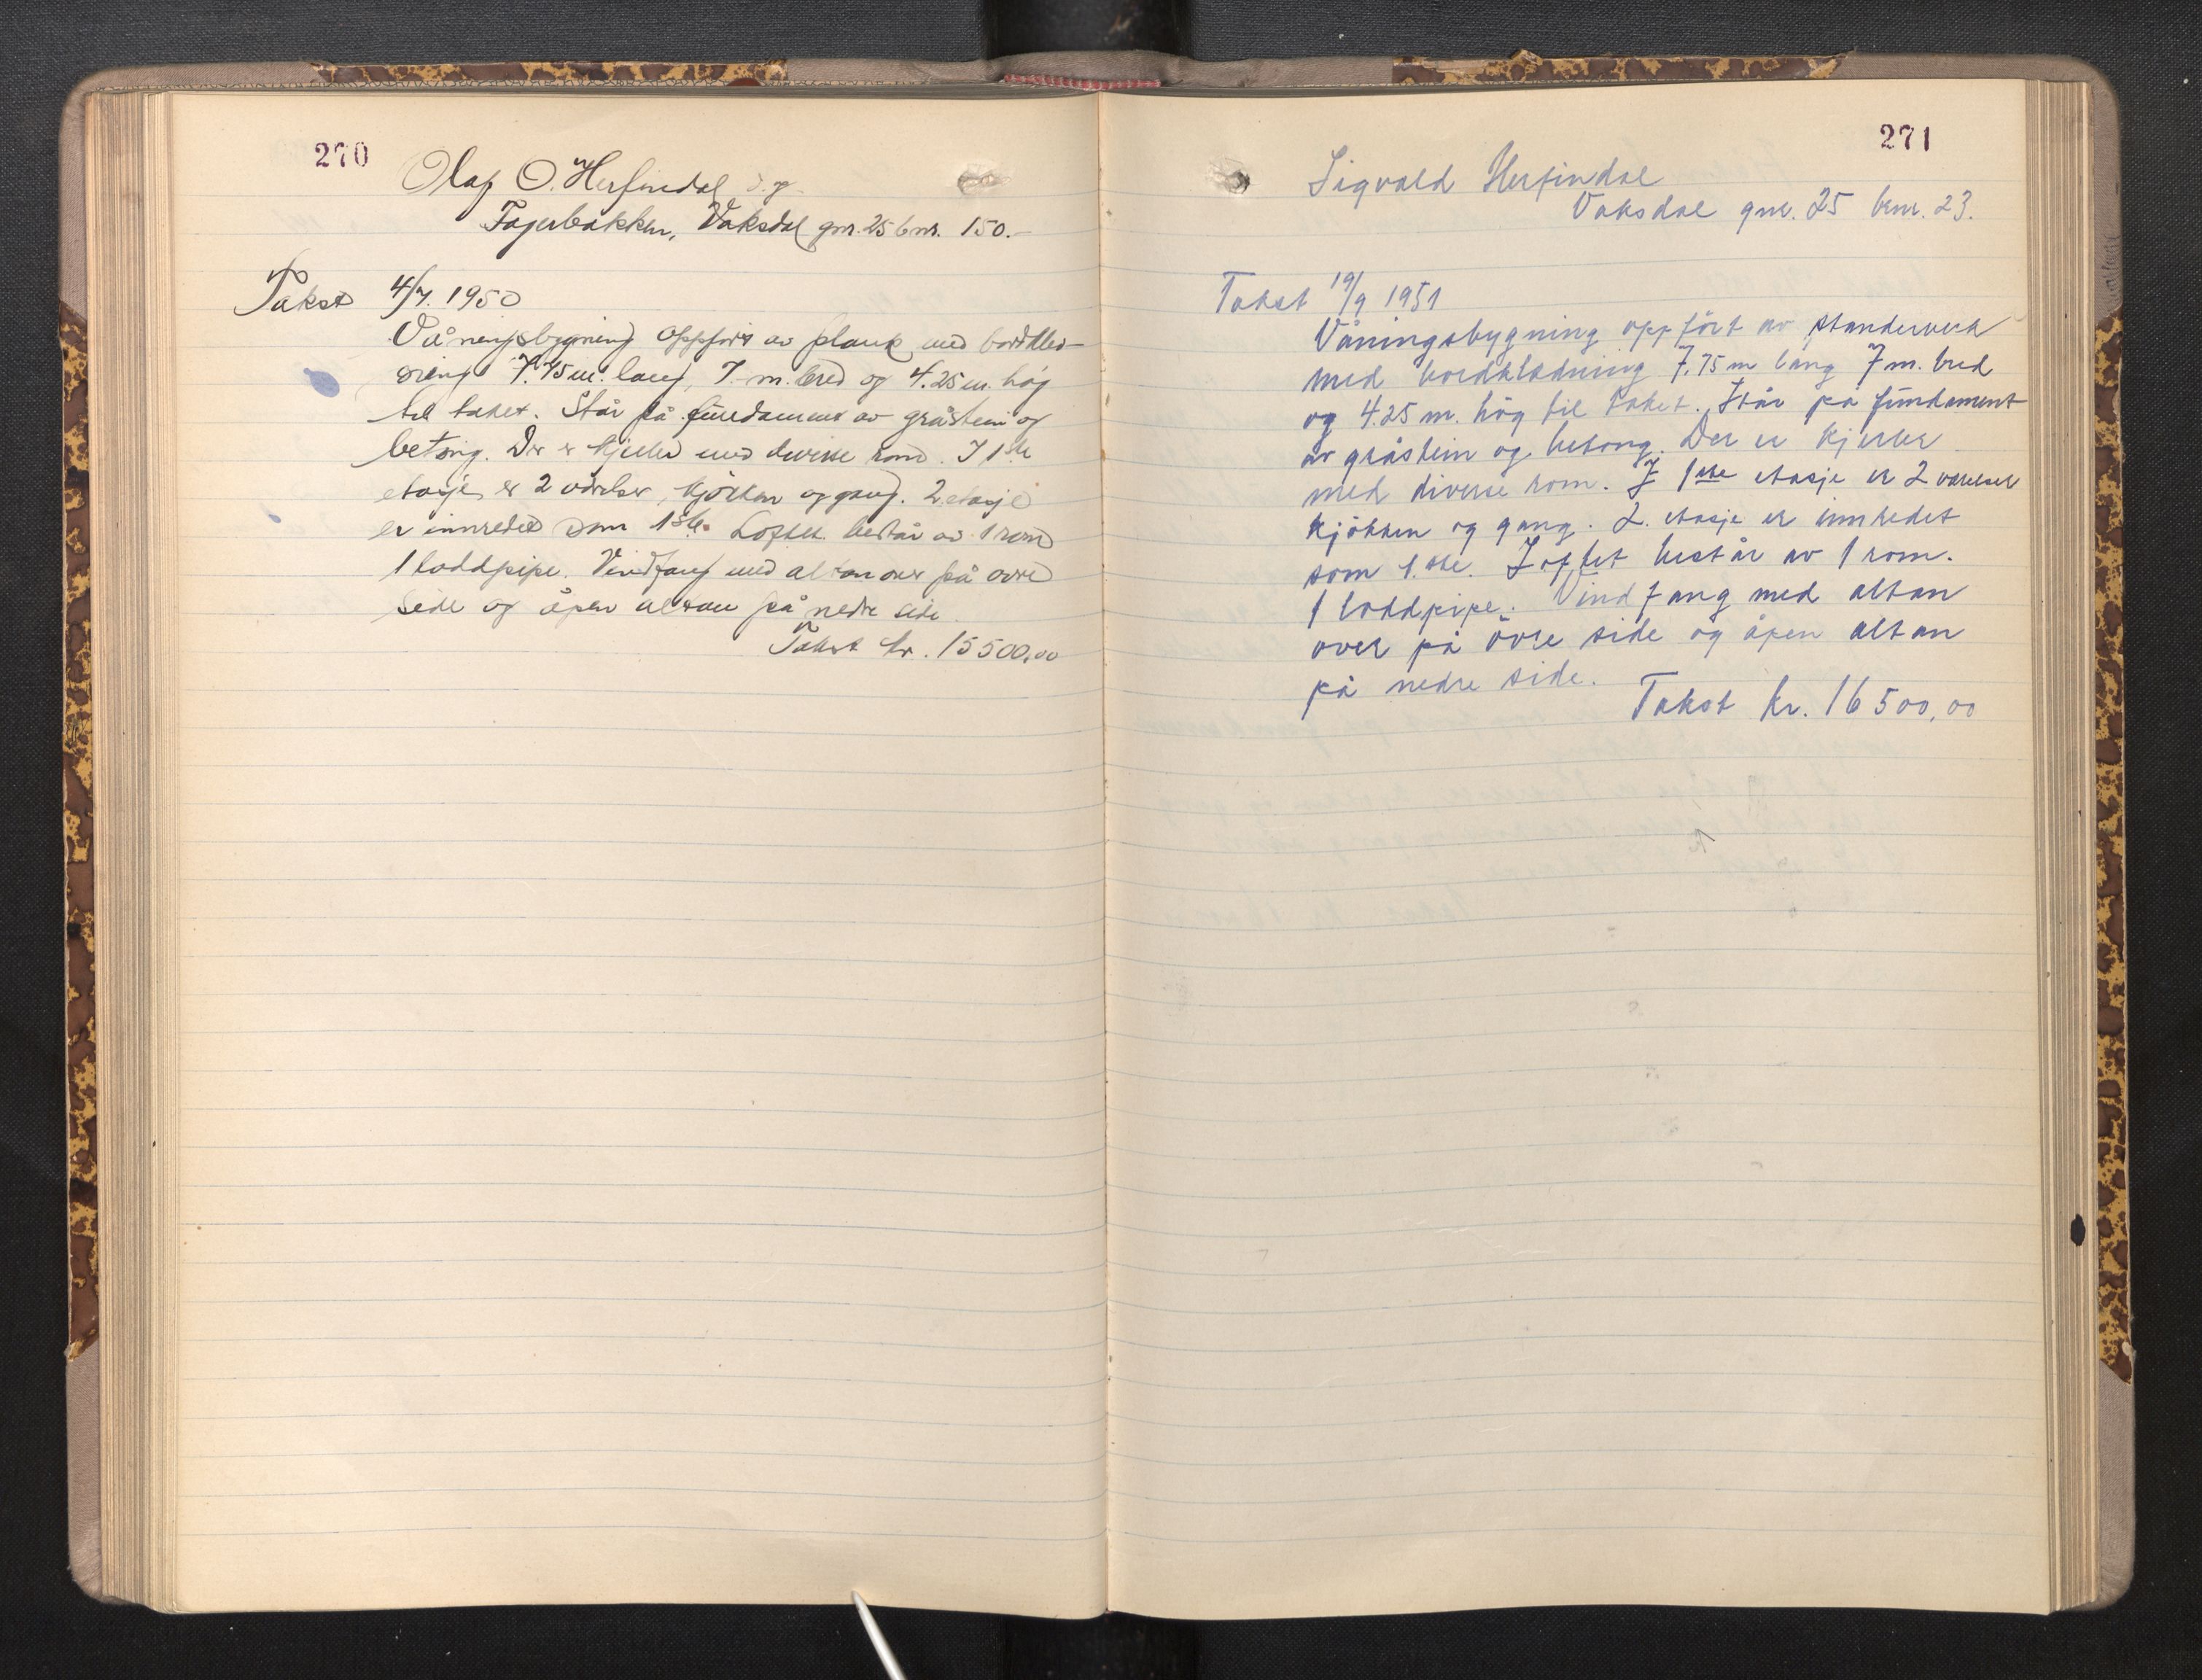 270
Olaf O. Herfindal
Fagerbakken, Vaksdal gnr. 25 bnr. 150.-
Takst 4/7. 1950
Våningsbygning oppført av plank med bordkled-
ning 7.75 m. lang, 7 m. bred og 4.25 m. høg
til taket. Står på fundament av gråstein og
betong. Der er kjeller med diverse rom. I 1ste
etasje er 2 værelser, kjökken og gang. 2 etasje
er innredet som 1ste. Loftet består av 1 rom
1 loddpipe. Vindfang med altan over på øvre
side og åpen altan på nedre side.
Takst kr. 15500,00
271
Sigvald Herfindal
Vaksdal gnr. 25 bnr. 23.
Takst 19/9 1951
Våningsbygning oppfört av standerverk
med bordkledning 7,75 m lang 7 m. bred
og 4.25 m. hög til taket. Står på fundament
av gråstein og betong. Der er kjeller
med diverse rom. I 1ste etasje er 2 værelser
kjökken og gang. 2. etasje er innredet
som 1.ste. Loftet består av 1 rom.
1 loddpipe. Vindfang med altan
over på övre side og åpen altan
på nedre side.
Takst kr. 16500,00